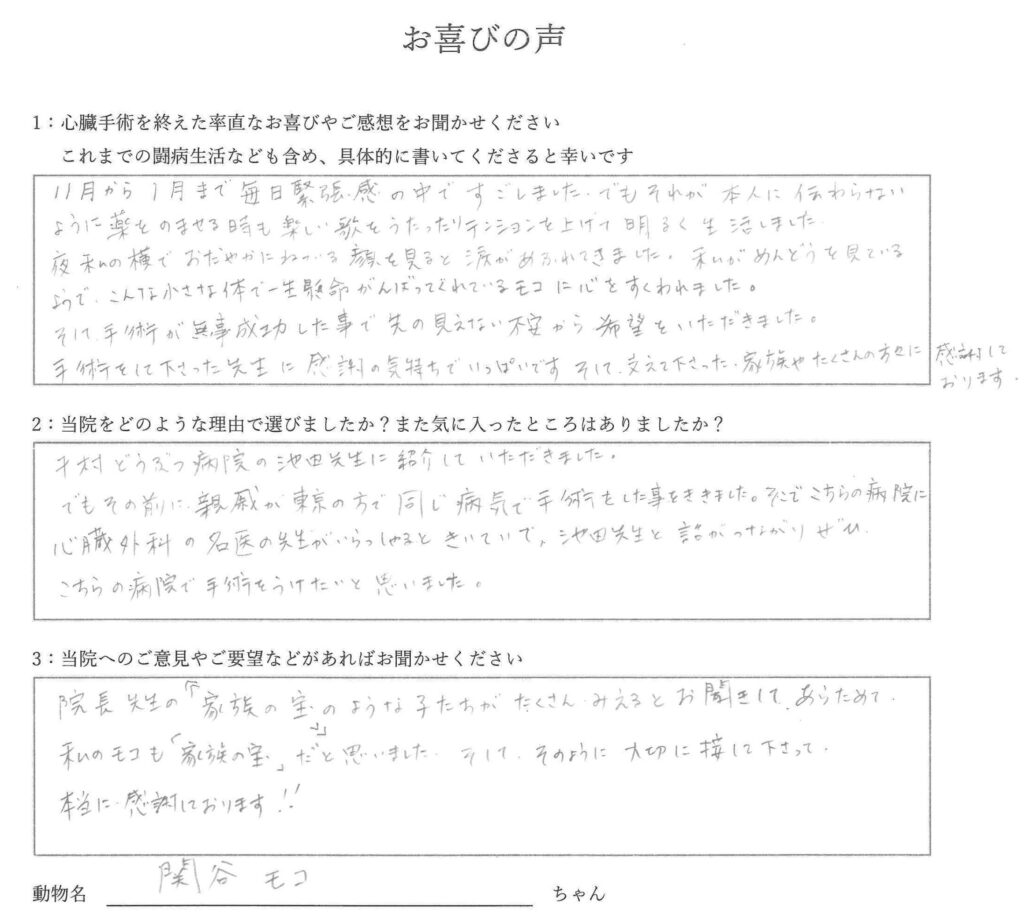 お喜びの声
1：心臓手術を終えた率直なお喜びやご感想をお聞かせください
これまでの闘病生活なども含め、具体的に書いてくださると幸いです
11月から1月まで毎日緊張感の中ですごしました。でもそれが本人に伝わらない
ように薬をのませる時も楽しい歌をうたったりテンションを上げて明るく生活しました。
夜私の横でおだやかにねている顔を見ると涙があふれてきました。私がめんどうを見ている
ようで、こんな小さな体で一生懸命がんばってくれているモコに心をすくわれました。
そして手術が無事成功した事で先の見えない不安から希望をいただきました。
手術をして下さった先生に感謝の気持ちでいっぱいです そして、支えて下さった、家族やたくさんの方々に感謝して
おります。
2：当院をどのような理由で選びましたか？また気に入ったところはありましたか？
村どうぶつ病院の池田先生に紹介していただきました。
でもその前に、親戚が東京の方で同じ病気で手術をした事をききました。そこでこちらの病院に
心臓外科の名医の先生がいらっしゃるときいていで、池田先生と話がつながりぜひ
こちらの病院で手術をうけたいと思いました。
3：当院へのご意見やご要望などがあればお聞かせください
院長先生の『家族の宝のような子たちがたくさんみえるとお聞きして、あらためて、
私のモコも「家族の宝」だと思いました。そして、そのように大切に接して下さって、
本当に感謝しております!!
動物名 関谷 モコ ちゃん